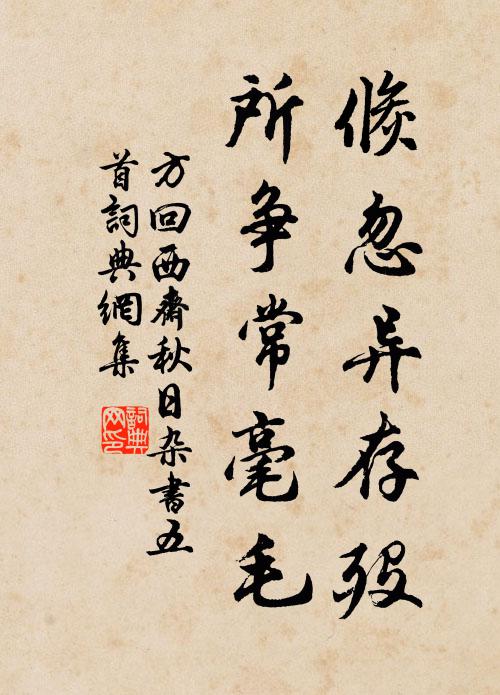 倏忽异存殁
所争常毫毛
方回西斋秋日杂書五
首詞典網集
詞典网印